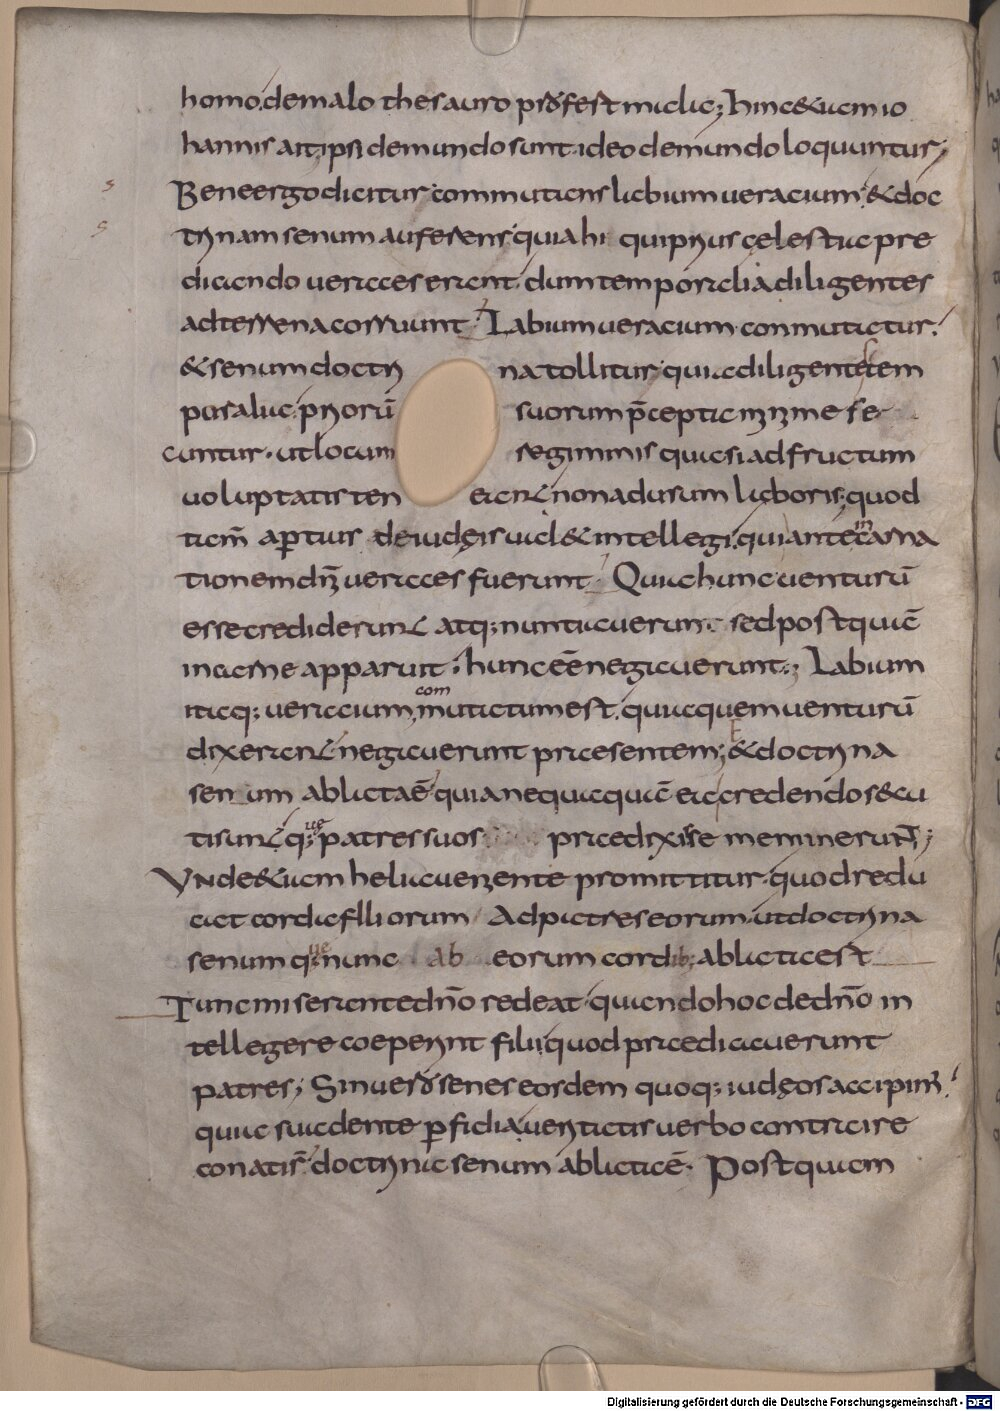 homo de malo thesauro profest mala; hinc & iam io
hannis ait; ipsi de mundo sunt ideo de mundo loquuntur;
Bene ergo dicitur commutans labium ueracium. & doc
trinam senum auferens quia hi qui prius cęlestia pre
dicando ueraces erant. dum temporalia diligentes
ad terrena corruunt; Labium ueracium conmutatur.
& senum doctri na tollitur quia diligentes tem
poralia. priorū suorum p̄cepta minime se
cuntur. ut locum regiminis quasi ad fructum
uoluptatis ten eant non ad usum laboris; quod
tam̄ aptius de iudęis ual& intellegi. qui ante incarna
tionem dn̄i ueraces fuerunt. Quia hunc uenturū
esse crediderunt atq; nuntiauerunt. sed postquā
in carne apparuit. hunc eē negauerunt; Labium
itaq; ueracium commutatum est. quia quem uenturū
dixerant negauerunt praesentem; & doctrina
senum ablata ē quia nequaquā ea credendo secu
ti sunt quę patres suos praedixisse meminerunt;
Unde & iam helia ueniente promittitur. quod redu
cat corda filiorum Ad patres eorum. ut doctrina
senum quę nunc ab eorum cordib; ablata est
Tunc miserante dn̄o redeat. quando hoc de dn̄o in
tellegere coeperint filii quod praedicauerunt
patres; Sin uero senes eosdem quoq; iudęos accipim̄.
qui suadente perfidia ueritatis uerbo contraire
conati s̄t doctrina senum ablata ē. Postquam
Digitalisierung gefördert durch die Deutsche Forschungsgemeinschaft - DFG